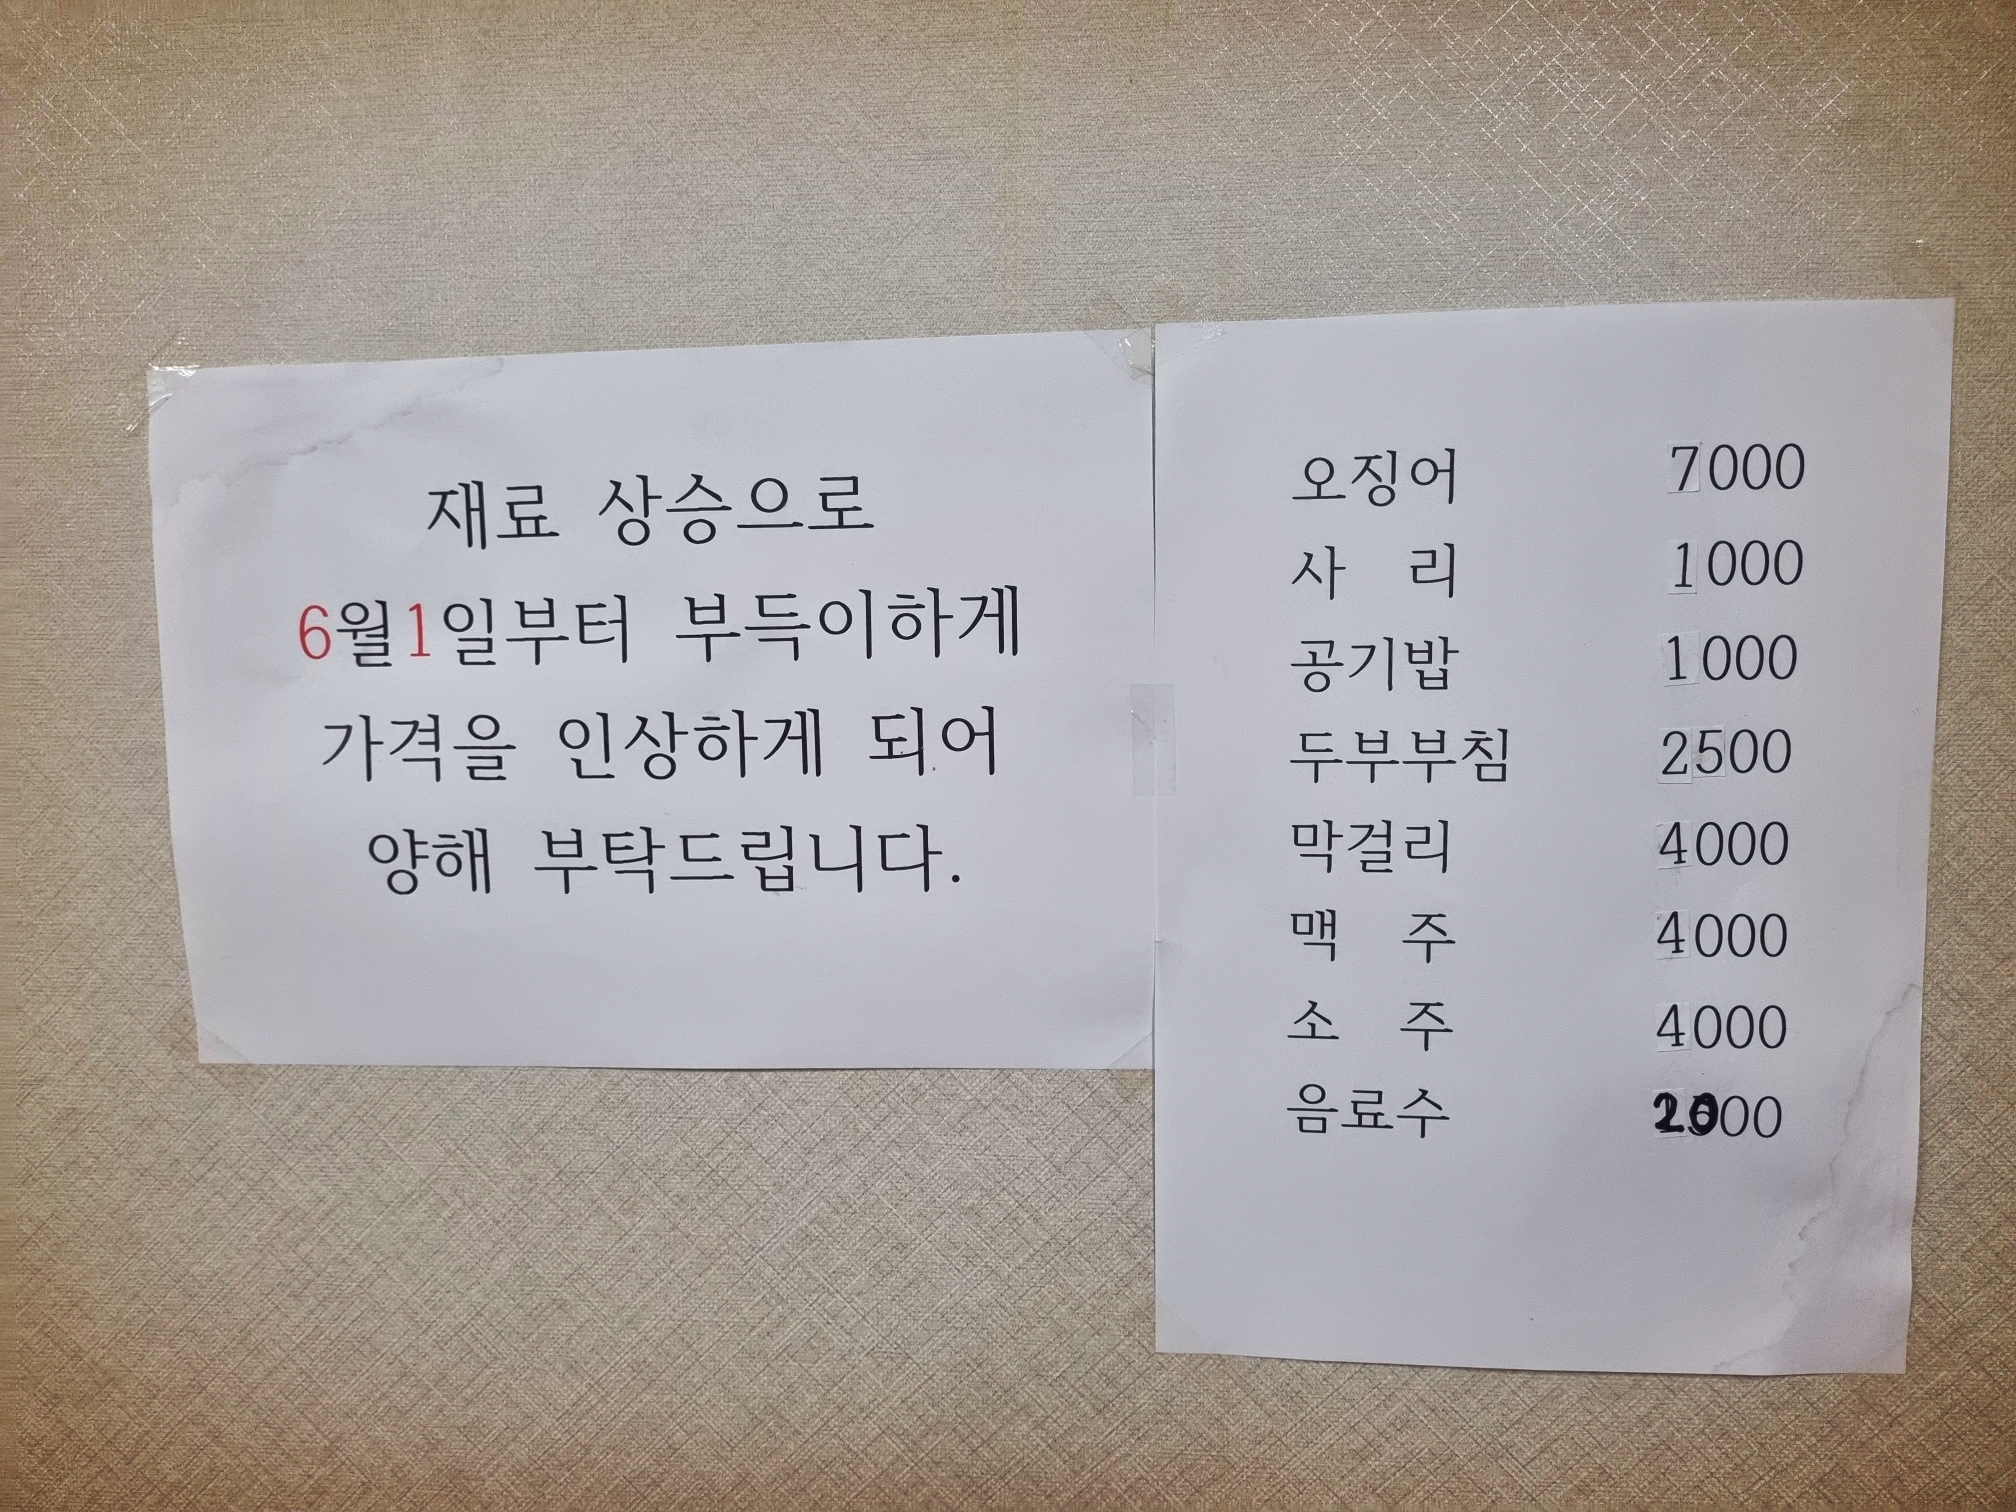 재료 상승으로
6월1일부터 부득이하게
가격을 인상하게 되어
양해 부탁드립니다.
오징어 7000
사 리 1000
공기밥 1000
두부부침 2500
막걸리 4000
맥 주 4000
소 주 4000
음료수 2000